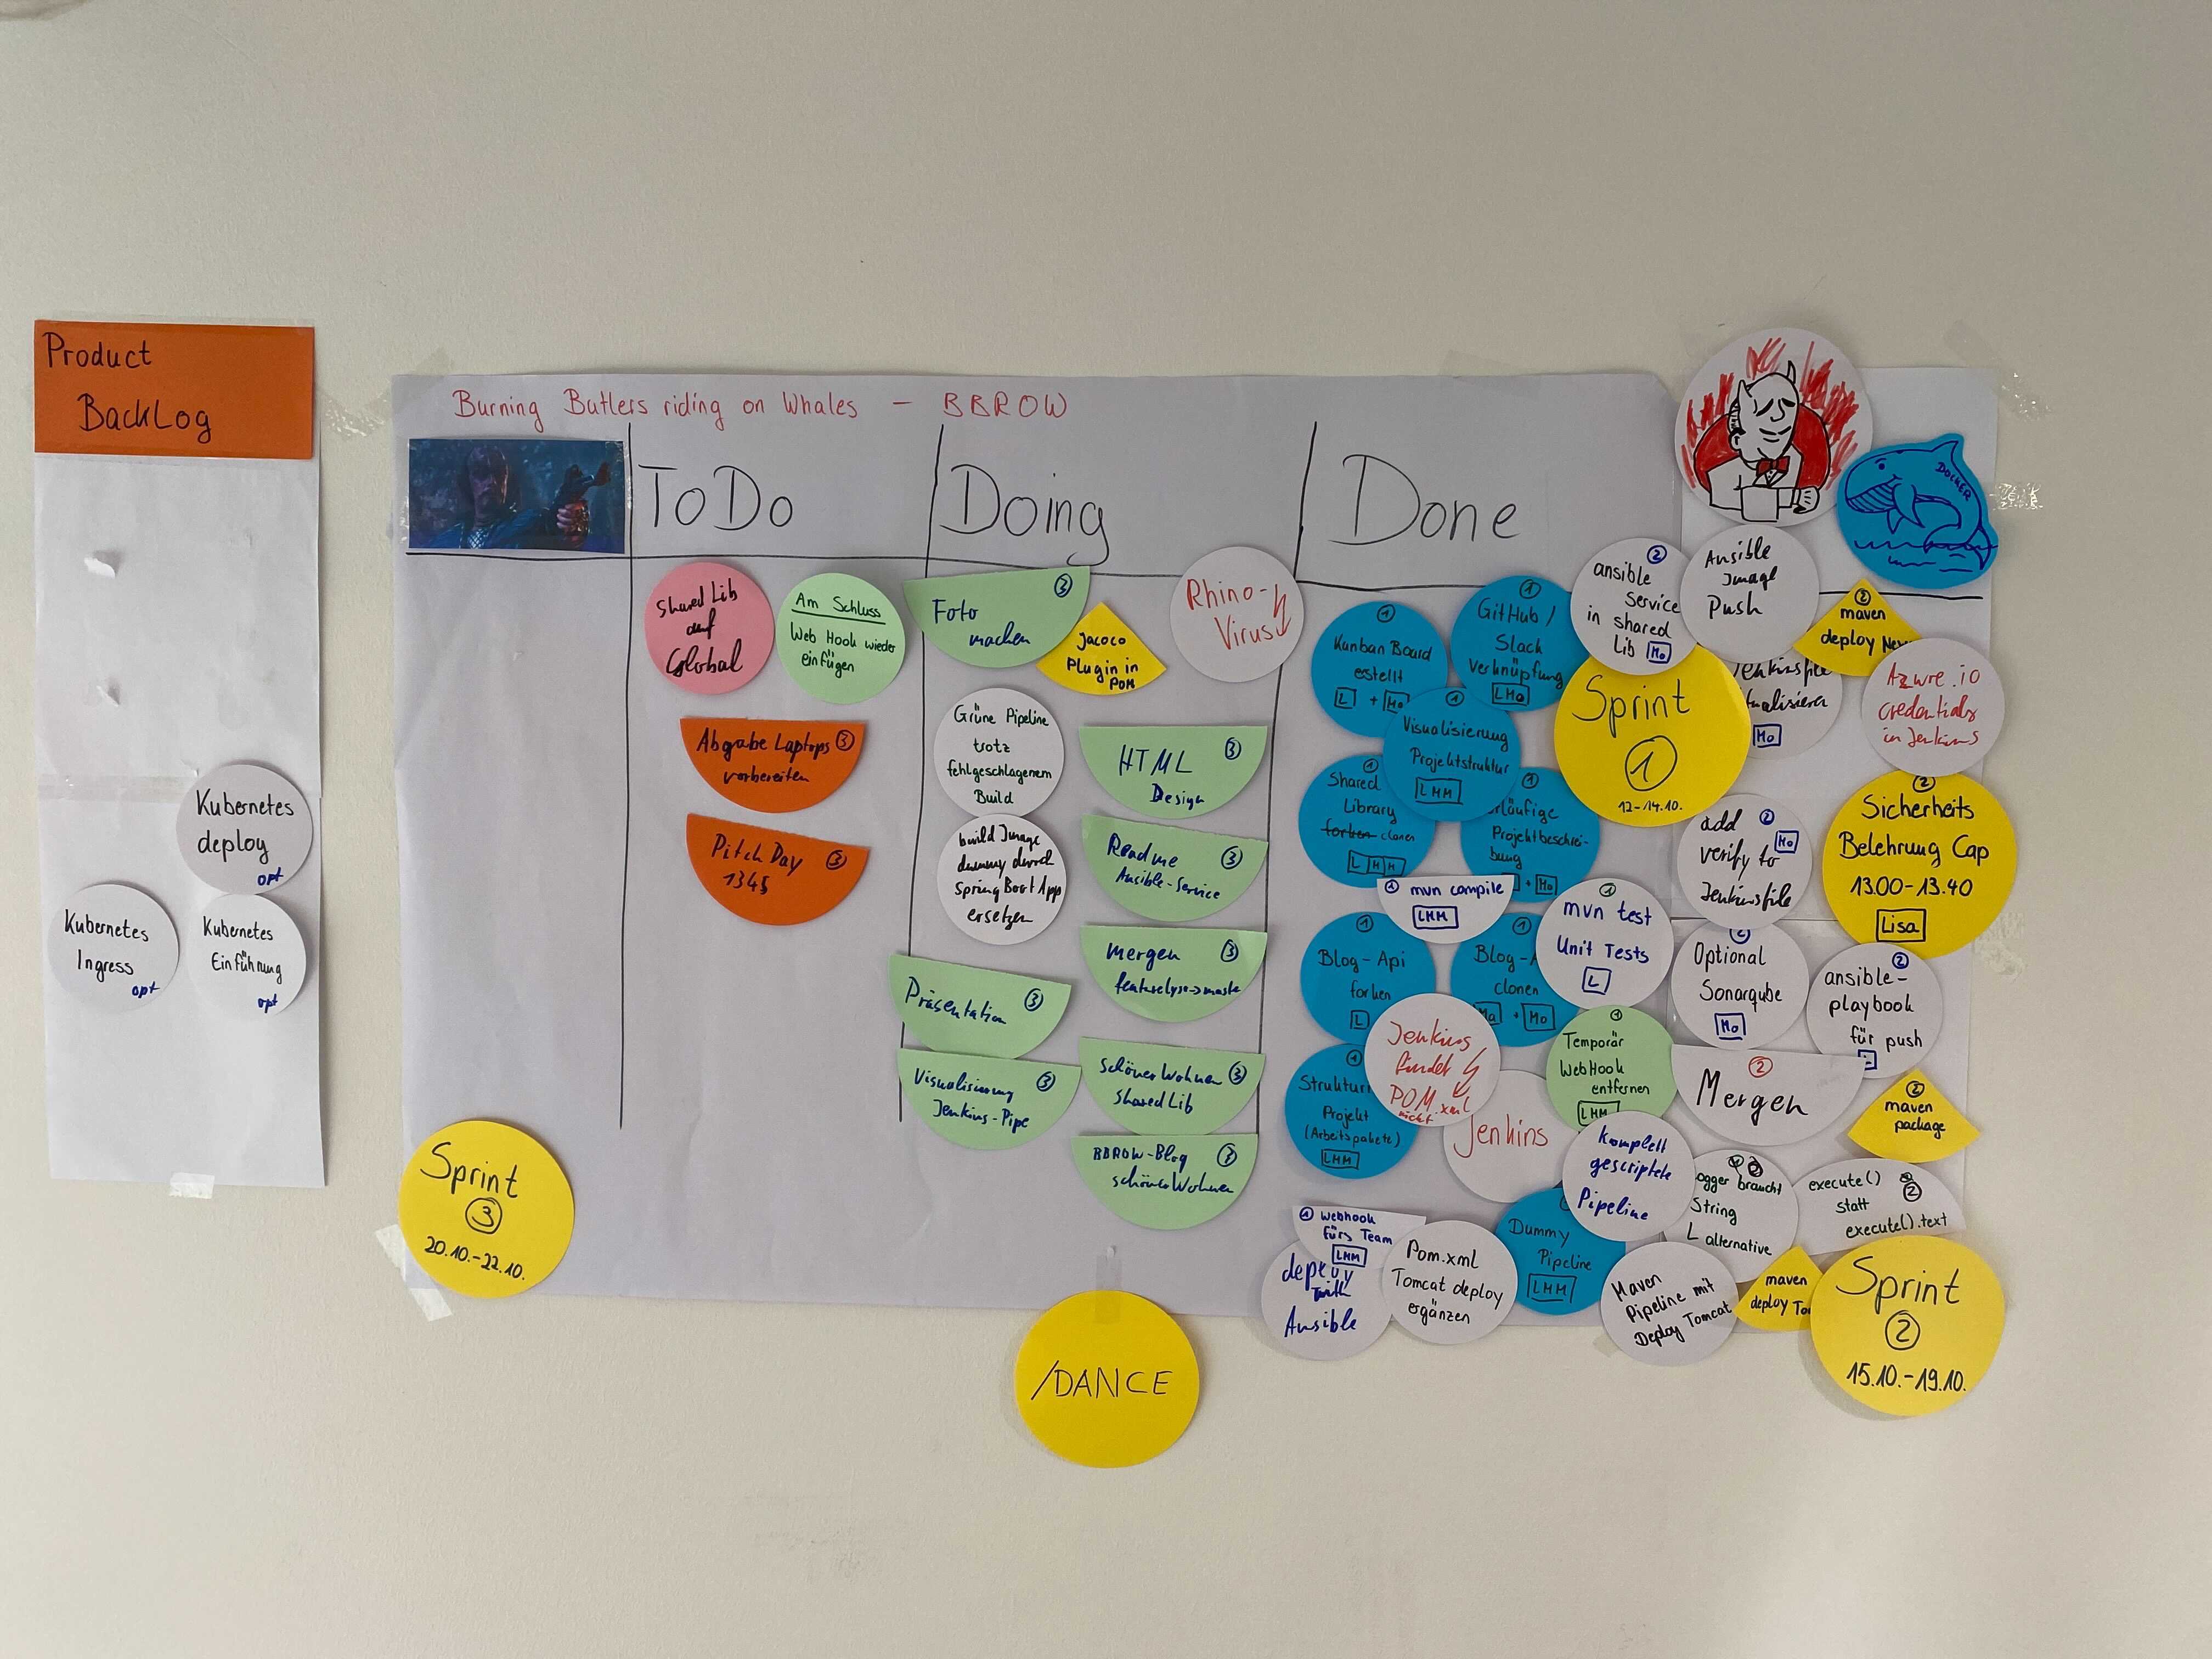 Product
BackLog
Kubernetes
deploy
opt
Kubernetes
Ingress
opt
Kubernetes
Einführung
opt
Burning Butlers riding on Whales - BBROW
ToDo
Doing
Done
DOCKER
Shared Lib
auf
Global
Am Schluss
Web Hook wieder
einfügen
Abgabe Laptops ③
vorbereiten
Pitch Day ③
1345
Sprint
③
20.10.-22.10.
③
Foto
machen
Jacoco
Plugin in
POM
Rhino-
Virus
Grüne Pipeline
trotz
fehlgeschlagenem
Build
build Image
dummy durch
Spring Boot App
ersetzen
HTML ③
Design
Readme ③
Ansible-Service
mergen ③
Präsentation ③
Visualisierung ③
Jenkins-Pipe
Schöner Wohnen ③
Shared Lib
BBROW-Blog ③
schöner Wohnen
/DANCE
①
Kanban Board
estellt
L + Mo
①
GitHub /
Slack
Verknüpfung
①
Visualisierung
Projektstruktur
LMM
①
Shared
Library
forken clonen
LMM
①
rläufige
Projektbeschrei-
bung
+ Mo
① mvn compile
LMM
①
mvn test
Unit Tests
L
①
Blog-Api
forken
L
①
Blog-A
clonen
+ Mo
Jenkins
findet
POM.xml
nicht
①
Struktur
Projekt
(Arbeitspakete)
LMM
Jenkins
①
Temporär
WebHook
entfernen
LMM
komplett
gescriptete
Pipeline
① Webhook
fürs Team
LMM
deploy
with
Ansible
Pom.xml
Tomcat deploy
ergänzen
Dummy
Pipeline
LMM
Maven
Pipeline mit
Deploy Tomcat
maven
deploy To
Sprint
①
12-14.10.
②
ansible
Service
in shared
Lib Mo
Ansible
Image
Push
②
maven
deploy Nex
Jenkinsfile
ualisieren
Mo
Azure.io
credentials
in Jenkins
add ②
verify to Mo
Jenkinsfile
②
Sicherheits
Belehrung Cap
13.00-13.40
Lisa
②
Optional
Sonarqube
Mo
②
ansible-
playbook
für push
②
Mergen
②
maven
package
②
ogger braucht
String
L alternative
execute() ②
statt
execute().text
Sprint
②
15.10.-19.10.